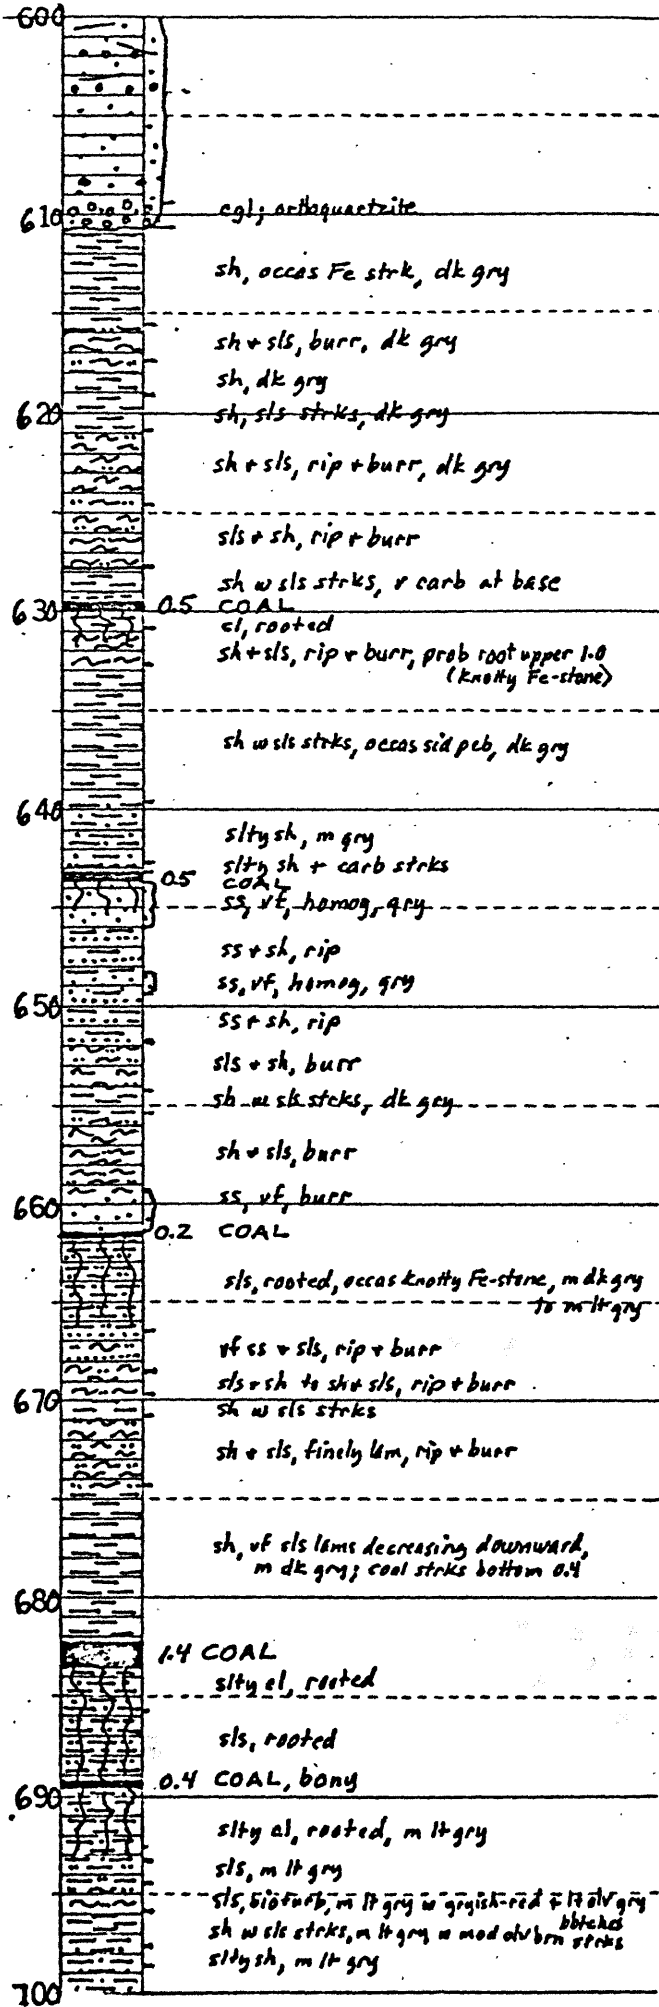 600
610 cgl; orthoquartzite
sh, occas Fe strk, dk gry
sh + sls, burr, dk gry
sh, dk gry
620 sh, sls strks, dk gry
sh + sls, rip + burr, dk gry
sls + sh, rip + burr
sh w sls strks, v carb at base
630 0.5 COAL
cl, rooted
sh + sls, rip + burr, prob root upper 1.0
(knotty Fe-stone)
sh w sls strks, occas sid peb, dk gry
640
slty sh, m gry
slty sh + carb strks
0.5 COAL
ss, vf, homog, gry
ss + sh, rip
ss, vf, homog, gry
650
ss + sh, rip
sls + sh, burr
sh w sls strks, dk gry
sh + sls, burr
660 ss, vf, burr
0.2 COAL
sls, rooted, occas knotty Fe-stone, m dk gry
to m lt gry
vf ss + sls, rip + burr
sls + sh to sh + sls, rip + burr
670 sh w sls strks
sh + sls, finely lam, rip + burr
sh, vf sls lams decreasing downward,
m dk gry; coal strks bottom 0.4
680
1.4 COAL
slty cl, rooted
sls, rooted
690 0.4 COAL, bony
slty cl, rooted, m lt gry
sls, m lt gry
sls, bioturb, m lt gry w gryish-red + lt olv gry
blotches
sh w sls strks, m lt gry w mod olv brn strks
slty sh, m lt gry
700